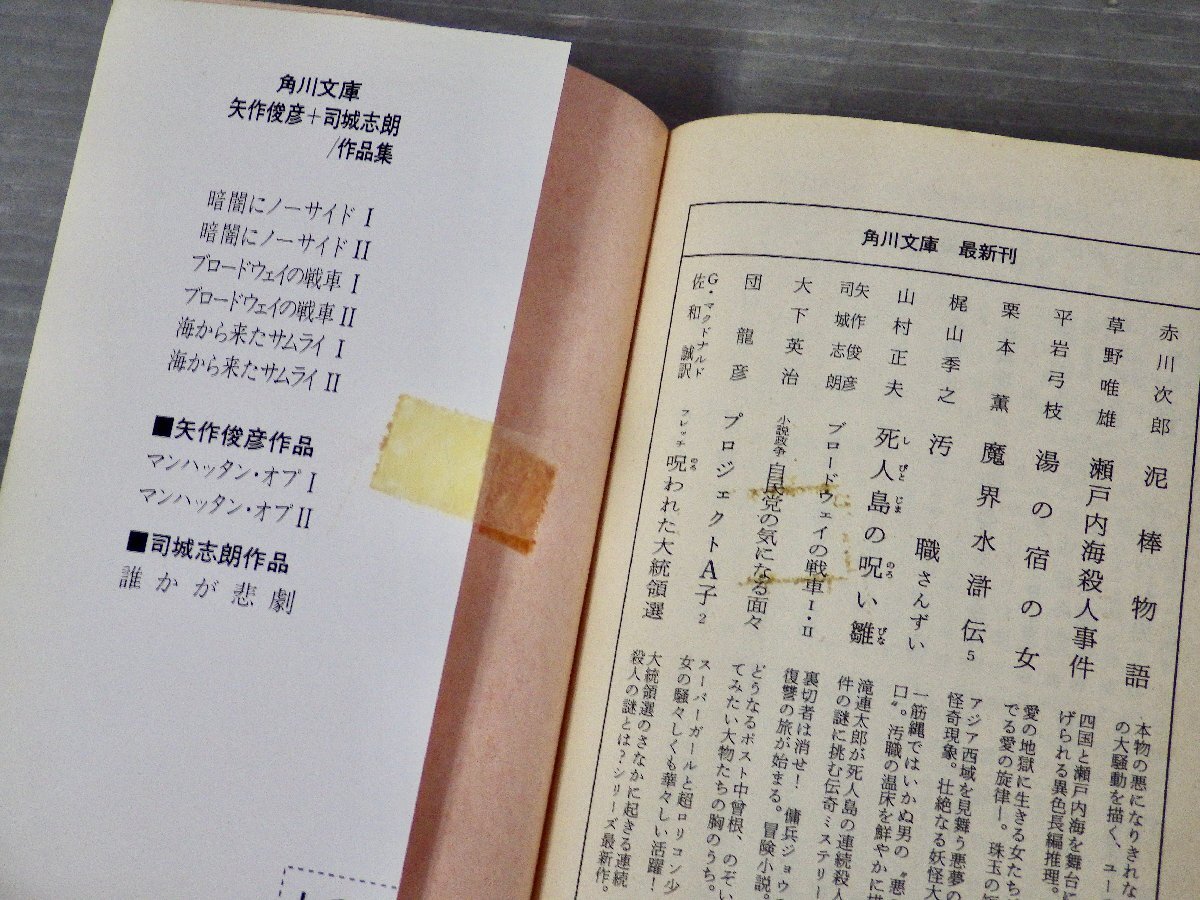 角川文庫
矢作俊彦+司城志朗
/作品集
暗闇にノーサイド I
暗闇にノーサイド II
ブロードウェイの戦車 I
ブロードウェイの戦車 II
海から来たサムライ I
海から来たサムライ II
■矢作俊彦作品
マンハッタン・オプ I
マンハッタン・オプ II
■司城志朗作品
誰かが悲劇
角川文庫 最新刊
赤川次郎 泥棒物語
本物の悪になりきれな
の大騒動を描く、ユー
草野唯雄 瀬戸内海殺人事件
四国と瀬戸内海を舞台に
げられる異色長編推理。
平岩弓枝 湯の宿の女
愛の地獄に生きる女たち
でる愛の旋律―。珠玉の
栗本薫 魔界水滸伝5
アジア西域を見舞う悪夢の
怪奇現象。壮絶なる妖怪大
梶山季之 汚職さんずい
一筋縄ではいかぬ男の〝悪
口〟。汚職の温床を鮮やかに
山村正夫 死人島の呪い雛
しびとじま のろ びな
滝連太郎が死人島の連続殺人
件の謎に挑む伝奇ミステリー
矢作俊彦
司城志朗 ブロードウェイの戦車 I・II
裏切者は消せ! 傭兵ジョウ
復讐の旅が始まる。冒険小説。
大下英治 小説政争 自民党の気になる面々
どうなるポスト中曽根、のぞい
てみたい大物たちの胸のうち。
団龍彦 プロジェクトA子2
スーパーガールと超ロリコン少
女の騒々しくも華々しい活躍!
G・マクドナルド
佐和誠訳 フレッチ 呪われた大統領選
のろ
大統領選のさなかに起きる連続
殺人の謎とは?シリーズ最新作。